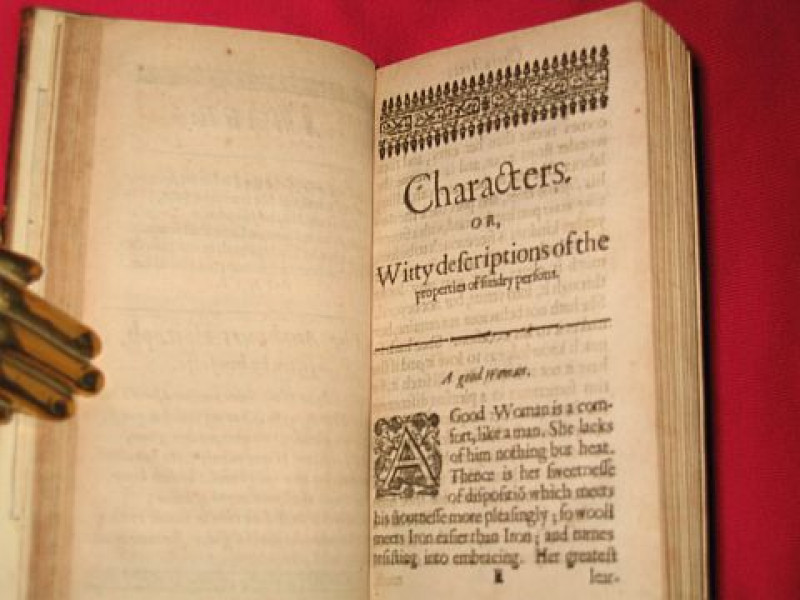 Characters.
OR,
Witty deſcriptions of the
properties of ſundry perſons.
A good Woman.
A Good Woman is a com-
fort, like a man. She lacks
of him nothing but heat.
Thence is her ſweetneſſe
of diſpoſitiō which meets
his ſtoutneſſe more pleaſingly; ſo wooll
meets Iron eaſier than Iron; and turnes
reſiſting into embracing. Her greateſt
lear-